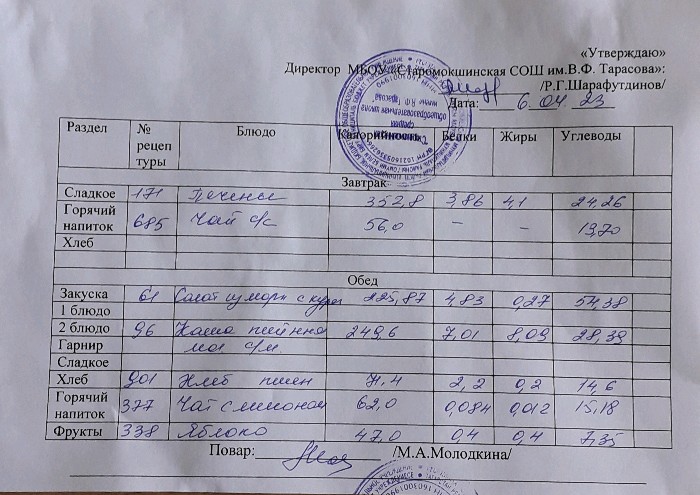 «Утверждаю»
Директор МБОУ «Старомокшинская СОШ им.В.Ф. Тарасова»:
/Р.Г.Шарафутдинов/
Дата: 6.04 23
Раздел № рецептуры Блюдо Калорийность Белки Жиры Углеводы
Завтрак
Сладкое 171 Печенье 352,8 3,86 4,1 24,26
Горячий напиток 685 Чай с/с 56,0 – – 19,70
Хлеб
Обед
Закуска 61 Салат из морк с кур 225,87 4,83 0,27 54,38
1 блюдо
2 блюдо 96 Каша пшённа 249,6 7,01 8,09 28,39
Гарнир с/м.
Сладкое
Хлеб 901 Хлеб пшен 71,4 2,2 0,2 14,6
Горячий напиток 377 Чай с лимоном 62,0 0,084 0,012 15,18
Фрукты 338 Яблоко 47,0 0,4 0,4 7,35
Повар: /М.А.Молодкина/